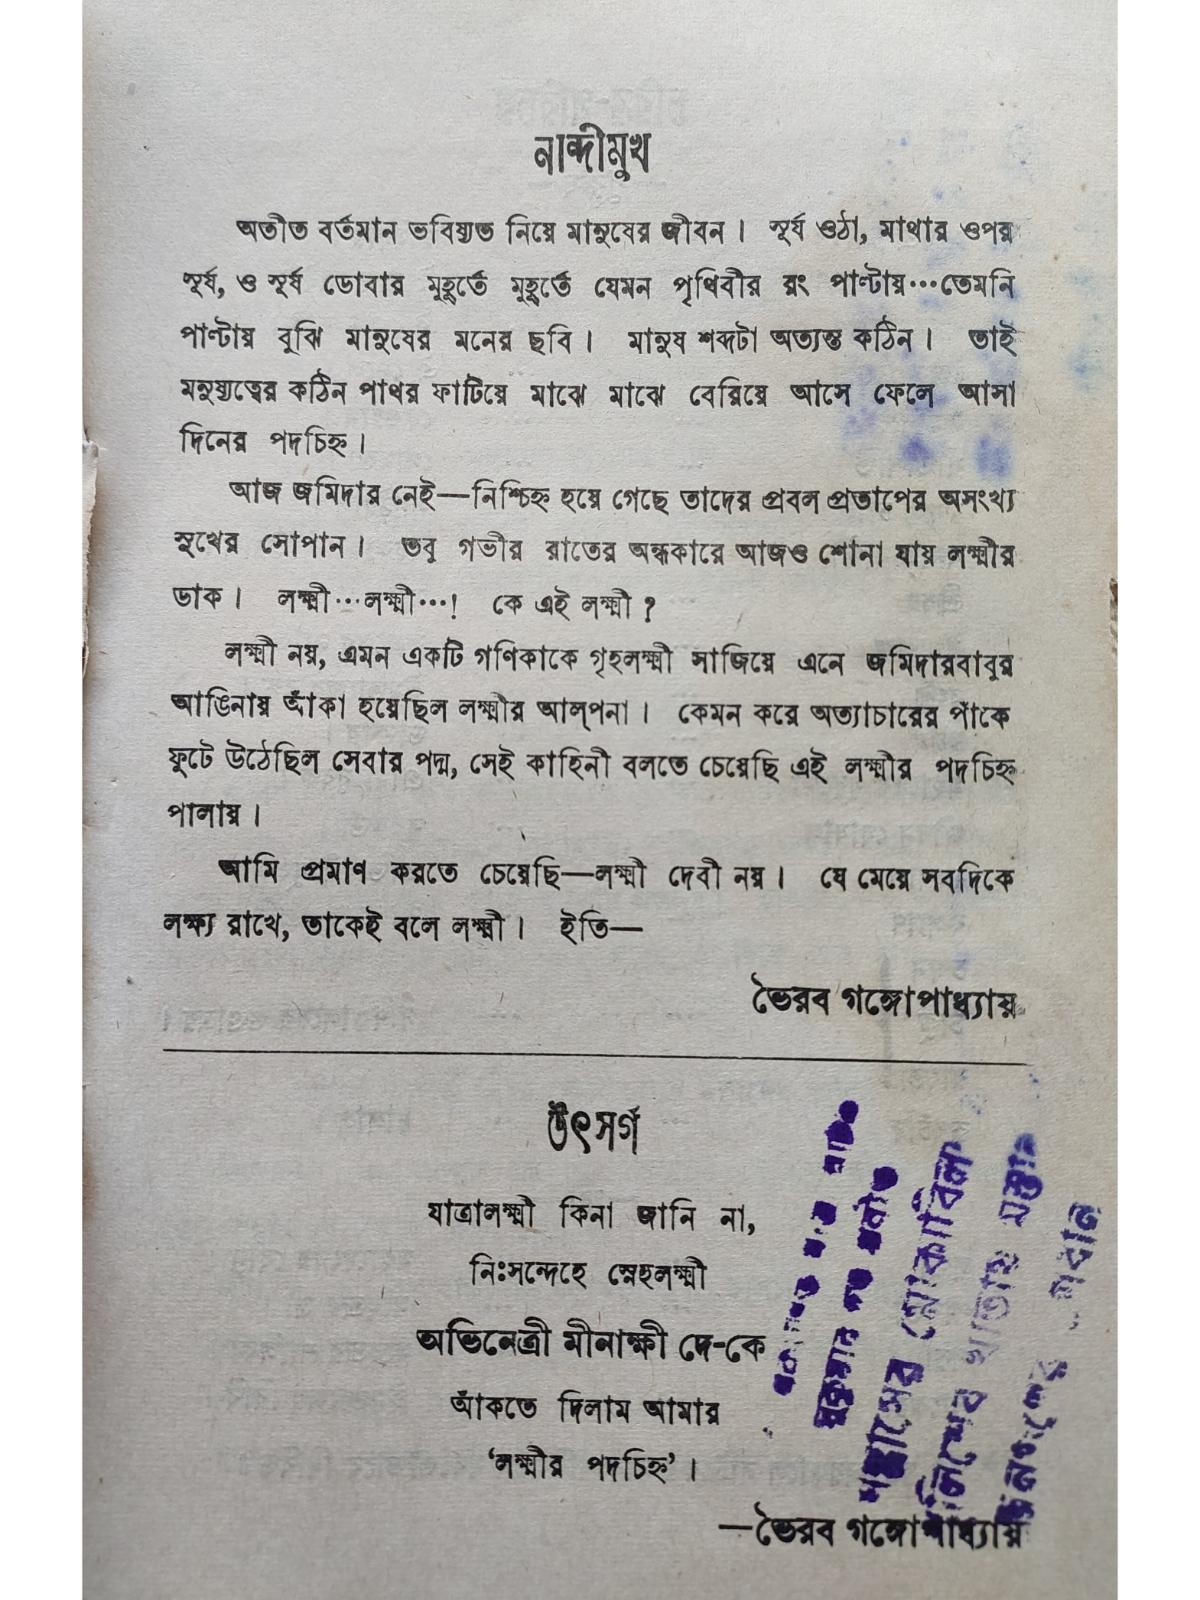 নান্দীমুখ
অতীত বর্তমান ভবিষ্যত নিয়ে মানুষের জীবন। সূর্য ওঠা, মাথার ওপর
সূর্য, ও সূর্য ডোবার মুহূর্তে মুহূর্তে যেমন পৃথিবীর রং পাল্টায়···তেমনি
পাল্টায় বুঝি মানুষের মনের ছবি। মানুষ শব্দটা অত্যন্ত কঠিন। তাই
মনুষ্যত্বের কঠিন পাথর ফাটিয়ে মাঝে মাঝে বেরিয়ে আসে ফেলে আসা
দিনের পদচিহ্ন।
আজ জমিদার নেই—নিশ্চিহ্ন হয়ে গেছে তাদের প্রবল প্রতাপের অসংখ্য
সুখের সোপান। তবু গভীর রাতের অন্ধকারে আজও শোনা যায় লক্ষ্মীর
ডাক। লক্ষ্মী···লক্ষ্মী···! কে এই লক্ষ্মী?
লক্ষ্মী নয়, এমন একটি গণিকাকে গৃহলক্ষ্মী সাজিয়ে এনে জমিদারবাবুর
আঙিনায় আঁকা হয়েছিল লক্ষ্মীর আল্পনা। কেমন করে অত্যাচারের পাঁকে
ফুটে উঠেছিল সেবার পদ্ম, সেই কাহিনী বলতে চেয়েছি এই লক্ষ্মীর পদচিহ্ন
পালায়।
আমি প্রমাণ করতে চেয়েছি—লক্ষ্মী দেবী নয়। যে মেয়ে সবদিকে
লক্ষ্য রাখে, তাকেই বলে লক্ষ্মী। ইতি—
ভৈরব গঙ্গোপাধ্যায়
উৎসর্গ
যাত্রালক্ষ্মী কিনা জানি না,
নিঃসন্দেহে স্নেহলক্ষ্মী
অভিনেত্রী মীনাক্ষী দে-কে
আঁকতে দিলাম আমার
‘লক্ষ্মীর পদচিহ্ন’।
—ভৈরব গঙ্গোপাধ্যায়